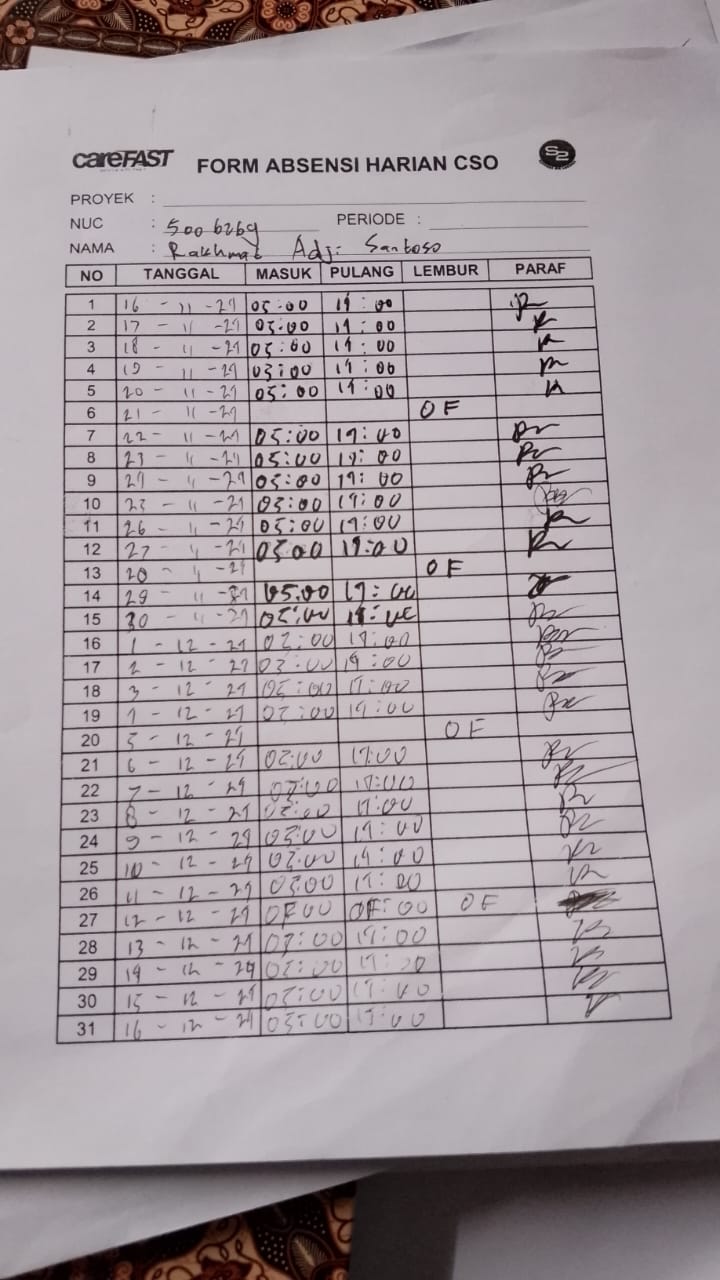 careFAST FORM ABSENSI HARIAN CSO S2
PROYEK :
NUC : 5006269 PERIODE :
NAMA : Rakhmat Adji Santoso
NO TANGGAL MASUK PULANG LEMBUR PARAF
1 16 - 11 - 24 05:00 14:00
2 17 - 11 - 24 05:00 14:00
3 18 - 11 - 24 05:00 14:00
4 19 - 11 - 24 05:00 14:00
5 20 - 11 - 24 05:00 14:00
6 21 - 11 - 24 OF
7 22 - 11 - 24 05:00 14:00
8 23 - 11 - 24 05:00 14:00
9 24 - 11 - 24 05:00 14:00
10 25 - 11 - 24 05:00 14:00
11 26 - 11 - 24 05:00 14:00
12 27 - 11 - 24 05:00 14:00
13 28 - 11 - 24 OF
14 29 - 11 - 24 05.00 14:00
15 30 - 11 - 24 05:00 14:00
16 1 - 12 - 24 05:00 14:00
17 2 - 12 - 24 05:00 14:00
18 3 - 12 - 24 05:00 14:00
19 4 - 12 - 24 05:00 14:00
20 5 - 12 - 24 OF
21 6 - 12 - 24 05:00 14:00
22 7 - 12 - 24 05:00 14:00
23 8 - 12 - 24 05:00 14:00
24 9 - 12 - 24 05:00 14:00
25 10 - 12 - 24 05:00 14:00
26 11 - 12 - 24 05:00 14:00
27 12 - 12 - 24 OF 00 OF:00 OF
28 13 - 12 - 24 05:00 14:00
29 14 - 12 - 24 05:00 14:00
30 15 - 12 - 24 05:00 14:00
31 16 - 12 - 24 05:00 14:00